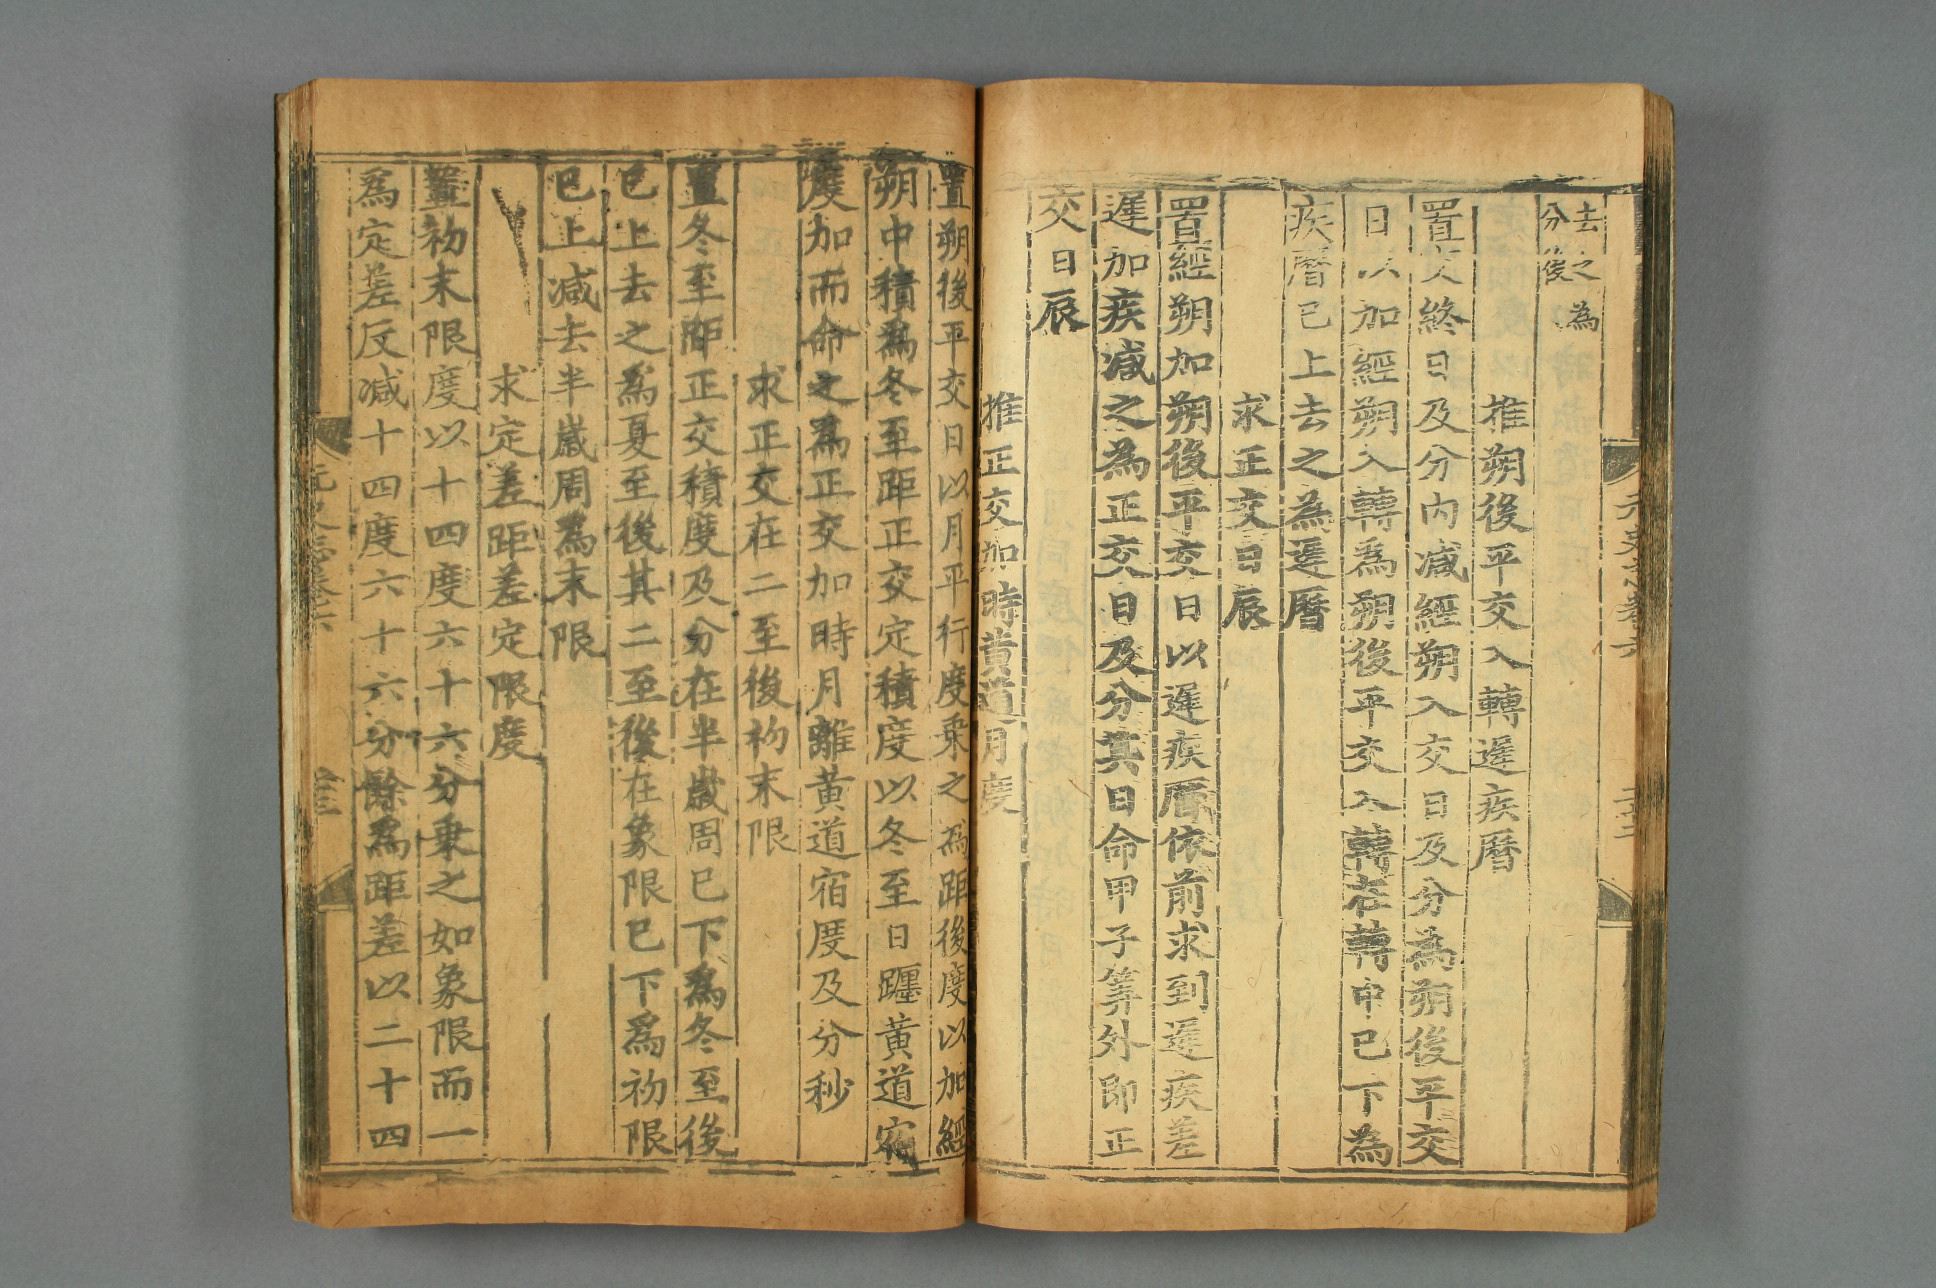 去之為
分後
推朔後平交入轉遲疾曆
置交終日及分內減經朔入交日及分為朔後平交
日以加經朔入轉為朔後平交入轉在轉中已下為
疾曆已上去之為遲曆
求正交日辰
置經朔加朔後平交日以遲疾曆依前求到遲疾差
遲加疾減之為正交日及分其日命甲子筭外即正
交日辰
推正交加時黃道月度
置朔後平交日以月平行度乘之為距後度以加經
朔中積為冬至距正交定積度以冬至日躔黃道宿
度加而命之為正交加時月離黃道宿度及分秒
求正交在二至後初末限
置冬至距正交積度及分在半歲周已下為冬至後
已上去之為夏至後其二至後在象限已下為初限
已上減去半歲周為末限
求定差距差定限度
置初末限度以十四度六十六分乘之如象限而一
為定差反減十四度六十六分餘為距差以二十四